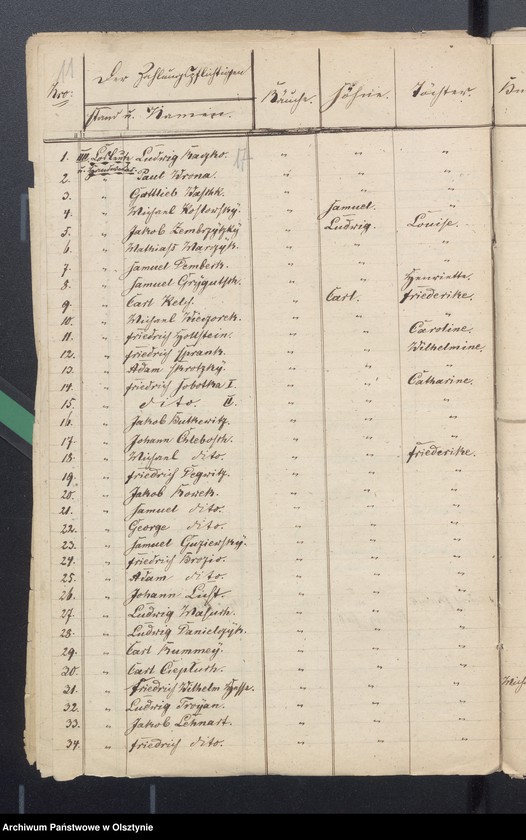 11
Der Zahlungspflichtigen
Nro:
Stand u. Namen.
Söhne.
Töchter.
1. III. Losleute Ludwig Kayko. 17
2. u. " Paul Wrona. " " "
3. " Gottlieb " " "
4. " Michael Kostowsky. " Samuel. "
5. " Jakob Zembrzytzky " Ludwig. Louise.
6. " Mathias Marzyk. " " "
7. " Samuel Dembeck. " " "
8. " Samuel Grygutsch. " " Henriette.
9. " Carl Kelch. " Carl. Friederike.
10. " Michael Wiegorek. " " "
11. " Friedrich Hollstein. " " Caroline.
12. " Friedrich Sprank. " " Wilhelmine.
13. " Adam Skrotzky. " " "
14. " Friedrich Sobottka I. " " Catharine.
15. " dito. II. " " "
16. " Jakob Butkewitz. " " "
17. " Johann Chlebosch. " " "
18. " Michael dito. " " Friederike.
19. " Friedrich Degwitz. " " "
20. " Jakob Kowek. " " "
21. " Samuel dito. " " "
22. " George dito. " " "
23. " Samuel Guziewsky. " " "
24. " Friedrich Brozio. " " "
25. " Adam dito. " " "
26. " Johann Lucht. " " "
27. " Ludwig Masuch. " " "
28. " Ludwig Danielczyk. " " "
29. " Carl Kummey. " " "
30. " CarlCiepluch. " " "
31. " Friedrich Wilhelm Hesse. " " "
32. " Ludwig Troyan. " " "
33. " Jakob Lehnart. " " "
34. " Friedrich dito. " " "
Archiwum Państwowe w Olsztynie